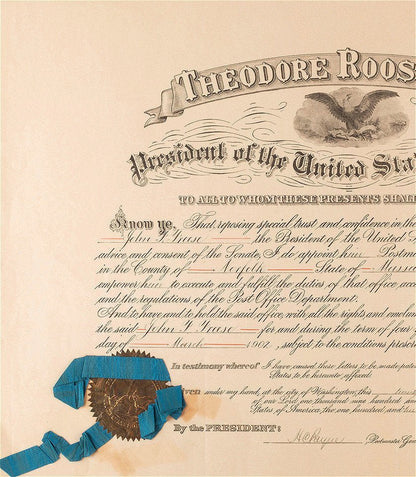 THEODORE ROOS
President of the United Sta
TO ALL TO WHOM THESE PRESENTS SHALL
Know ye, That reposing special trust and confidence in the
John F. the President of the United
advice and consent of the Senate, I do appoint him Postm
in the County of Norfolk State of Massa
empower him to execute and fulfill the duties of that office acco
and the regulations of the Post Office Department:
And to have and to hold the said office, with all the rights and emolum
the said John F. for and during the term of four
day of March 1902, subject to the conditions prescr
In testimony whereof I have caused these letters to be made paten
States to be hereunto affixed:
Given under my hand, at the city of Washington, this
of our Lord one thousand nine hundred and
States of America, the one hundred and
By the PRESIDENT:
H C Payne Postmaster Gen